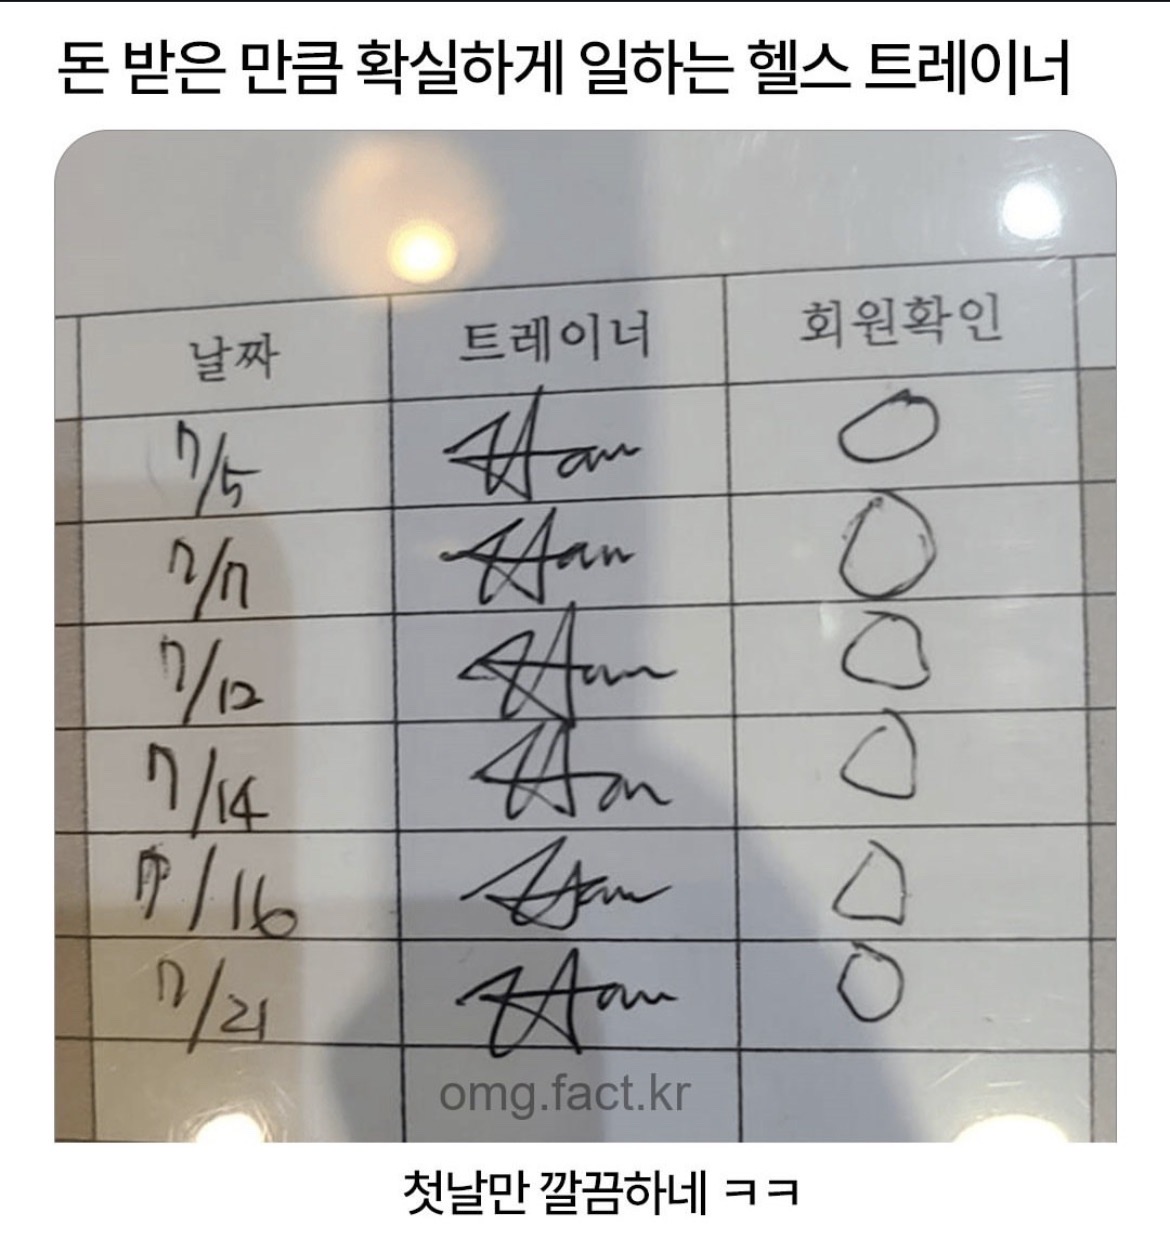 돈 받은 만큼 확실하게 일하는 헬스 트레이너
날짜 트레이너 회원확인
7/5 Han O
7/7 Han O
7/12 Han O
7/14 Han O
7/16 Han O
7/21 Han O
omg.fact.kr
첫날만 깔끔하네 ㅋㅋ